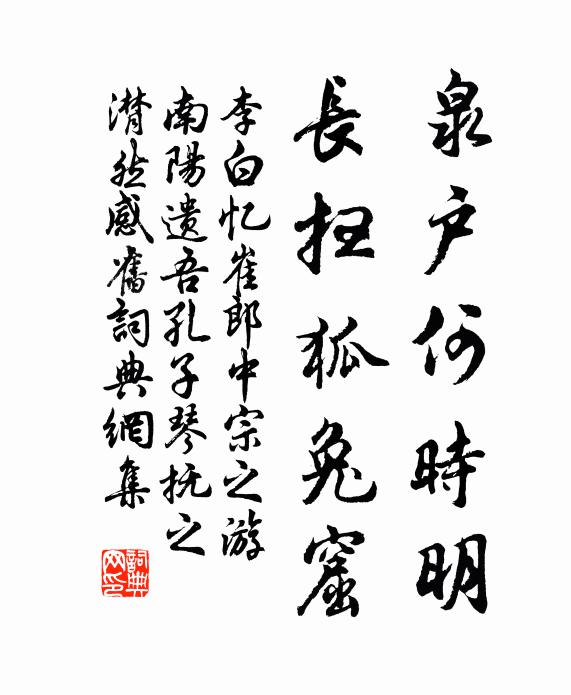 泉户何時明
長扫狐兔窟
李白忆崔郎中宗之游
南陽遗吾孔子琴抚之
潸然感舊詞典網集
詞典网印